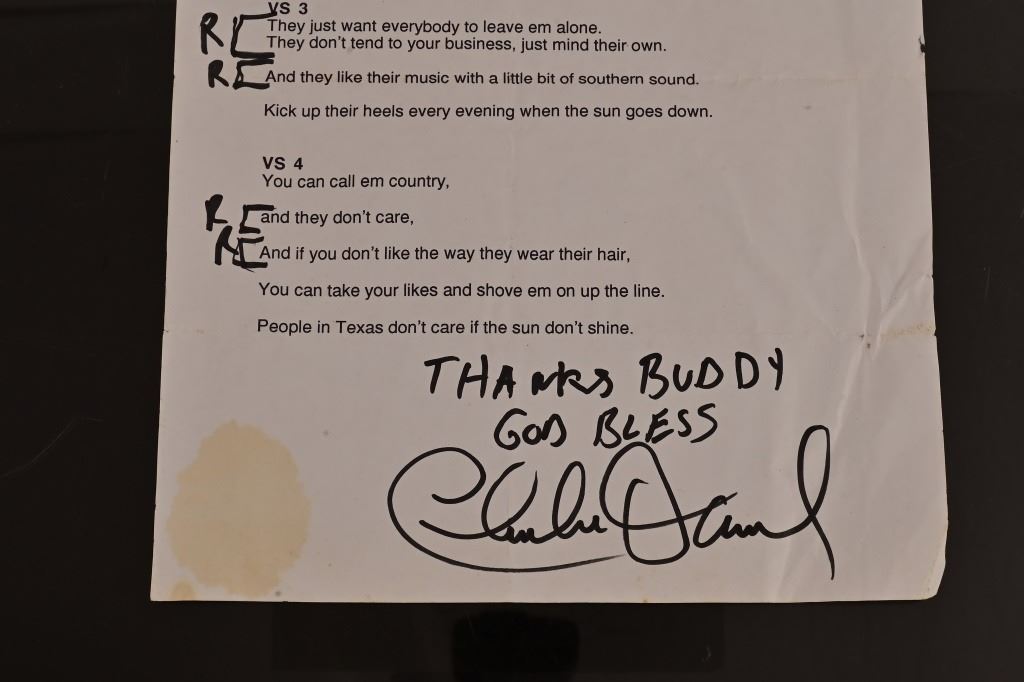 VS 3
RE They just want everybody to leave em alone.
They don't tend to your business, just mind their own.
RE And they like their music with a little bit of southern sound.
Kick up their heels every evening when the sun goes down.
VS 4
You can call em country,
RE and they don't care,
RE And if you don't like the way they wear their hair,
You can take your likes and shove em on up the line.
People in Texas don't care if the sun don't shine.
THANKS BUDDY
GOD BLESS
Charlie Daniels